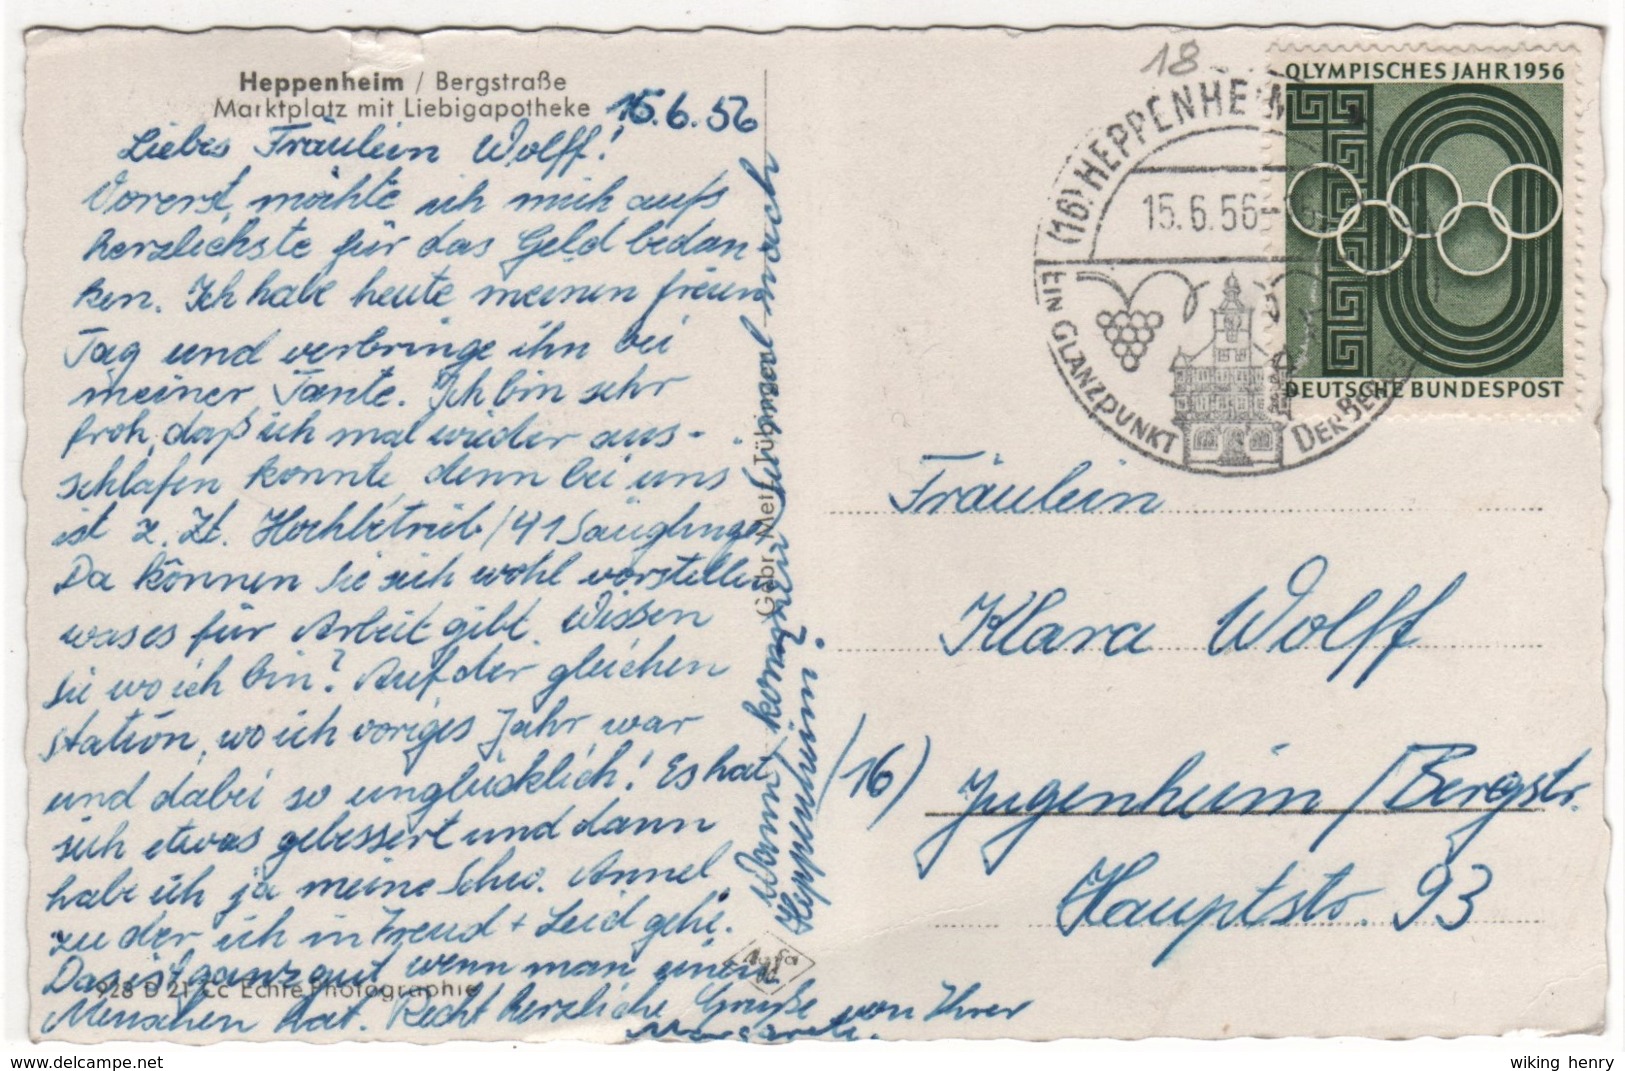 Heppenheim / Bergstraße
Marktplatz mit Liebigapotheke
15.6.56
Liebes Fräulein Wolff!
Vorerst möchte ich mich aufs
herzlichste für das Geld bedan-
ken. Ich habe heute meinen freien
Tag und verbringe ihn bei
meiner Tante. Ich bin sehr
froh, daß ich mal wieder aus-
schlafen konnte, denn bei uns
ist z. Zt. Hochbetrieb, 41 Säuglinge,
Da können Sie sich wohl vorstellen
was es für Arbeit gibt. Wissen
Sie wo ich bin? Auf der gleichen
Station, wo ich voriges Jahr war
und dabei so unglücklich! Es hat
sich etwas gebessert und dann
habe ich ja meine Schw. Annel.
zu der ich in Freud + Leid gehe.
Das ist ganz gut wenn man einen
Menschen hat. Recht herzliche Grüße von Ihrer
Margarete.
Wann kommen Sie einmal nach
Heppenheim?
Gebr. Metz, Tübingen
928 D 21 Cc Echte Photographie
18
(16) HEPPENHEIM
15.6.56
EIN GLANZPUNKT
DER BERGSTR
OLYMPISCHES JAHR 1956
DEUTSCHE BUNDESPOST
Fräulein
Klara Wolff
(16) Jugenheim / Bergstr.
Hauptstr. 93
delcampe.net
wiking henry